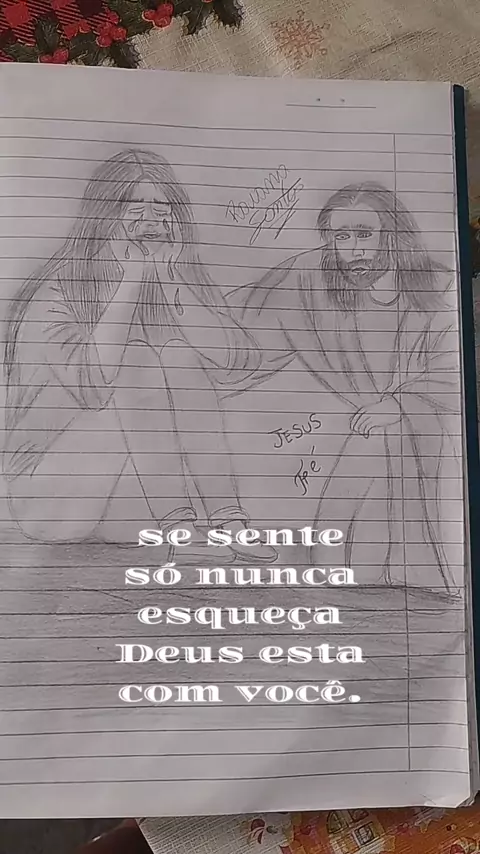 Santos
JESUS
se sente
só nunca
esqueça
Deus esta
com você.